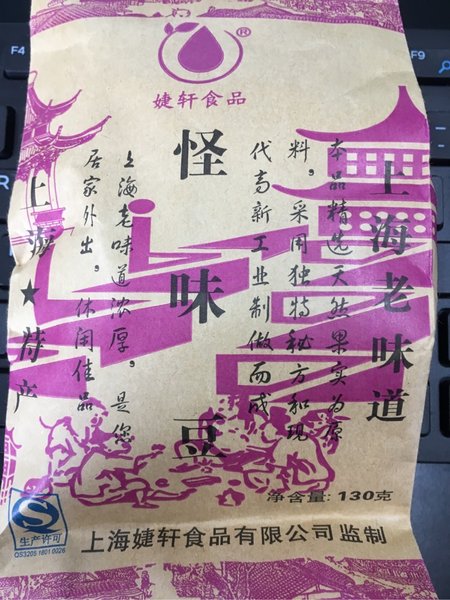 F4
F9
®
婕轩食品
上海老味道
本品精选天然果实为原
料，采用独特秘方和现
代高新工业制做而成
怪味豆
上海老味道浓厚，是您
居家外出，休闲佳品
上海★特产
净含量：130克
生产许可
QS3205 1801 0026
上海婕轩食品有限公司监制